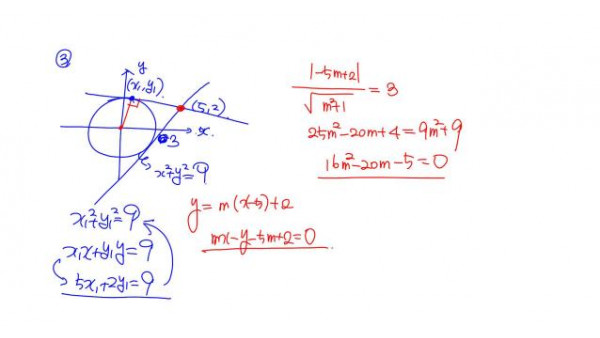 ③
y
(x₁,y₁)
(5,2)
x
3
x²+y²=9
x₁²+y₁²=9
x₁x+y₁y=9
5x₁+2y₁=9
y=m(x-5)+2
mx-y-5m+2=0
|-5m+2| / √m²+1 = 3
25m²-20m+4=9m²+9
16m²-20m-5=0